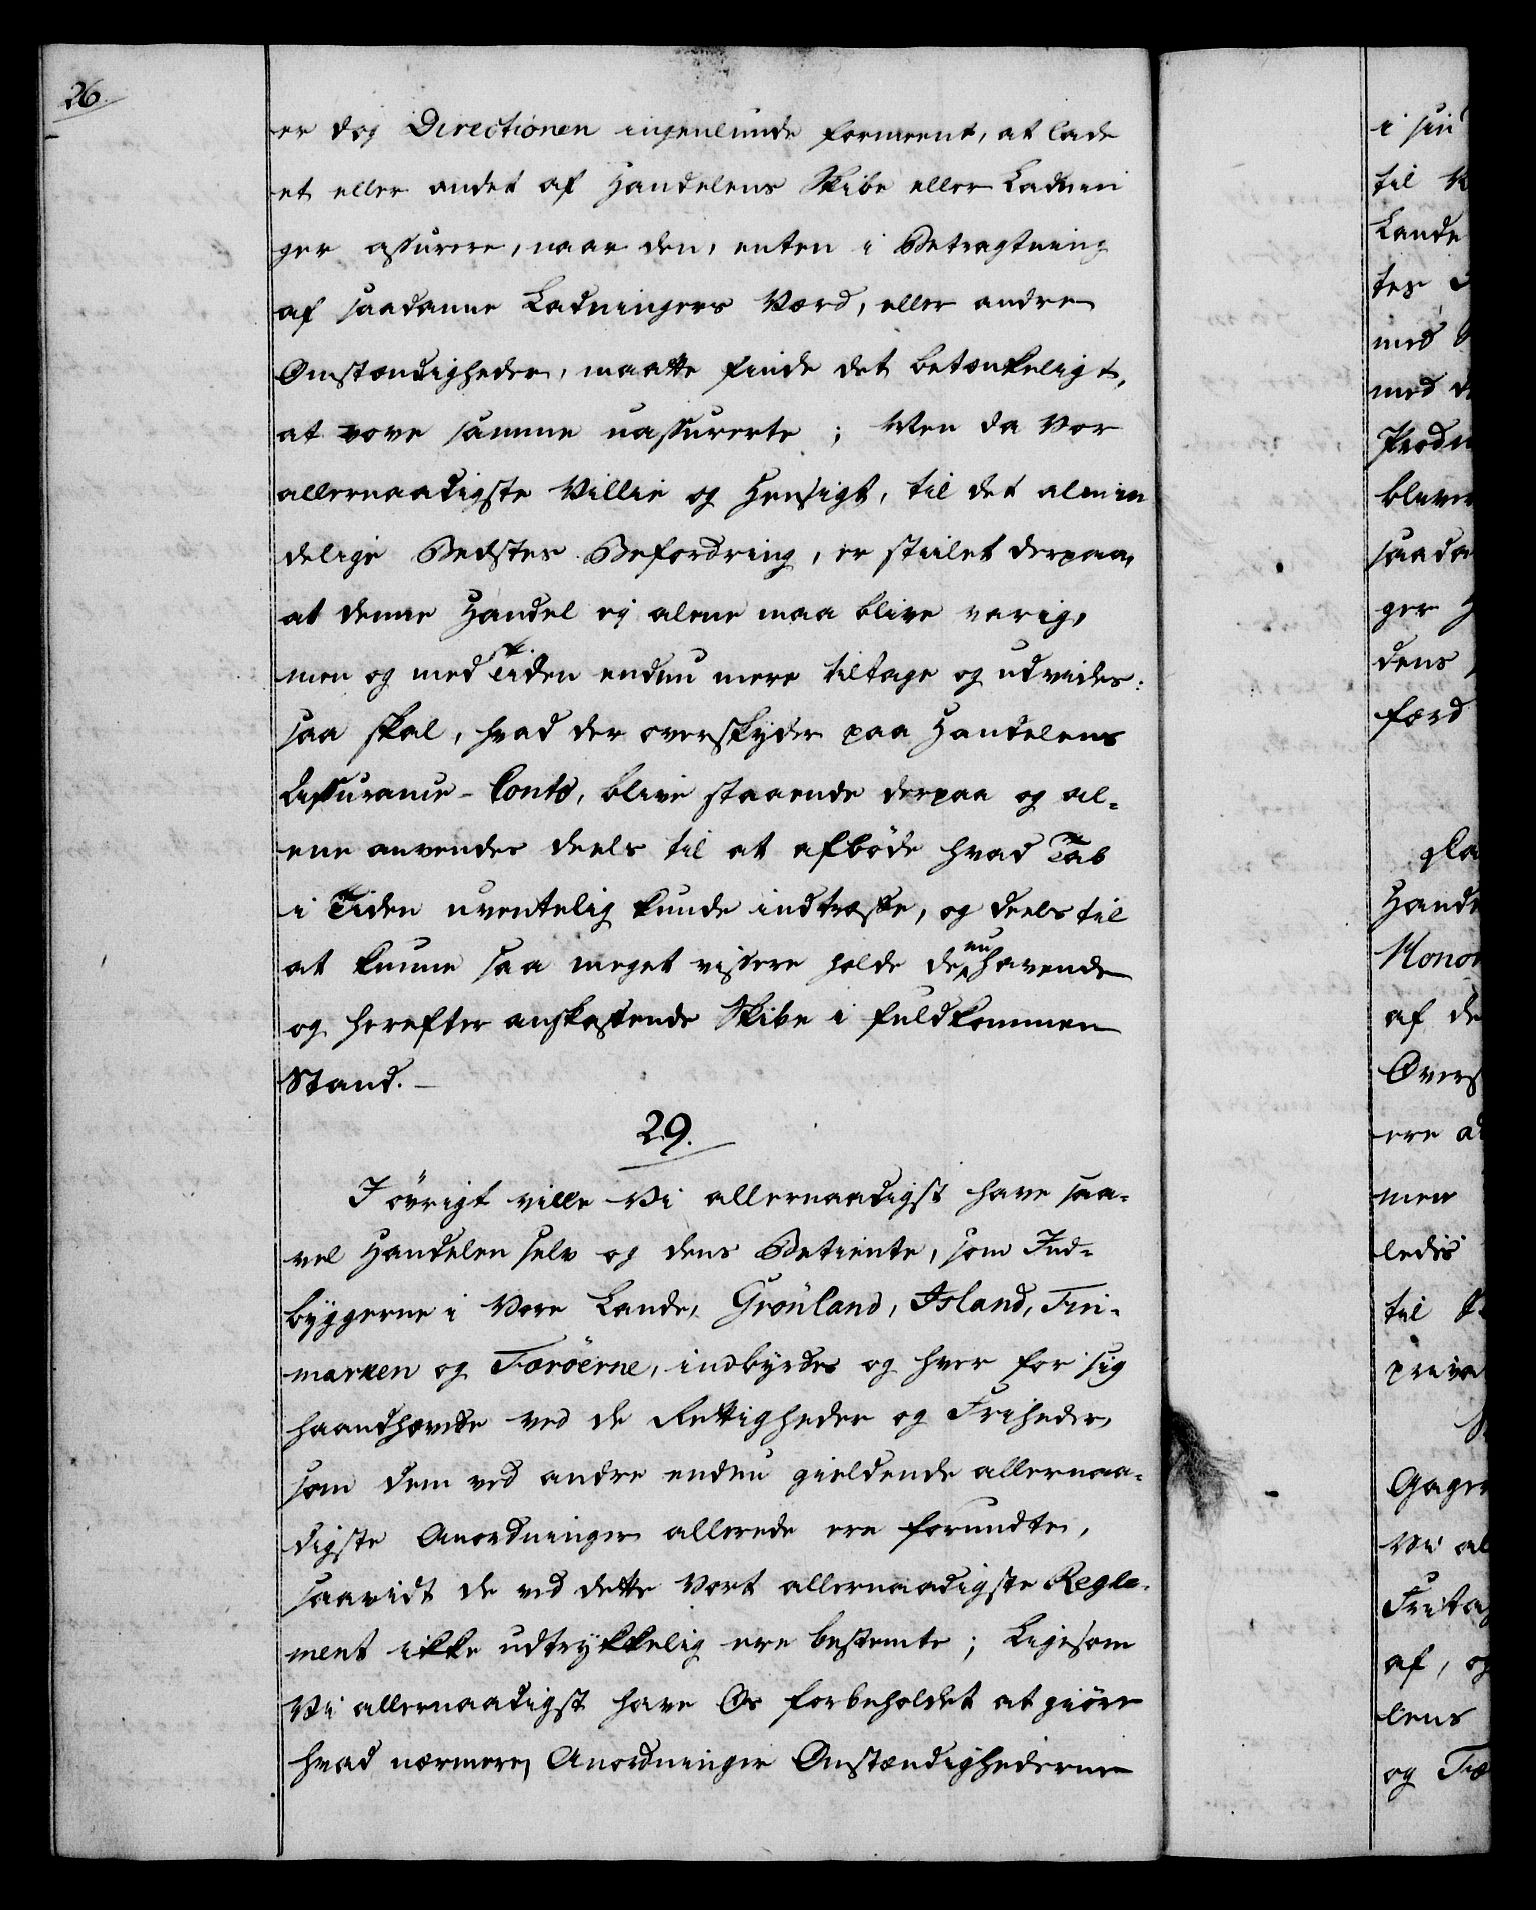 26.
er dog Directionen ingenlunde formeent, at lade
et eller andet af Handelens Skibe eller Ladnin
ger assurere, naar den, enten i Betragtning
af saadanne Ladningers Værd, eller andre
Omstændigheder, maatte finde det betænkeligt,
at vove samme uassurerte; Men da Vor
allernaadigste Villie og Hensigt, til det almin
delige Bedstes Befordring, er stiilet derpaa,
at denne Handel ej alene maa blive varig,
men og med Tiden endnu mere tiltage og udvides:
saa skal, hvad der overskyder paa Handelens
Assurance-Conto, blive staaende derpaa og al-
ene anvendes deels til at afböde hvad Tab
i Tiden uventelig kunde indtræffe, og deels til
at kunne saa meget vissere holde de nu havende
og herefter anskaffende Skibe i fuldkommen
Stand. —
29.
I övrigt ville Vi allernaadigst have saa-
vel Handelen selv og dens Betiente, som Ind-
byggerne i Vore Lande, Grönland, Island, Fin-
marken og Færöerne, indbyrdes og hver for sig
haandhævede ved de Rettigheder og Friheder,
som dem ved andre endnu gieldende allernaa-
digste Anordninger allerede ere forundte,
saavidt de ved dette Vort allernaadigste Regle-
ment ikke udtrykkelig ere bestemte; Ligesom
Vi allernaadigst have Os forbeholdet at giöre
hvad nærmere Anordninger Omstændighederne
i sin
til
Lande
tes
med
med
Produ
bleve
saada
ger
dens
færd
Hande
Honor
af de
Overs
ere
men
ledes
til
priva
Gager
Vi al
Fritag
af, og
lens
og